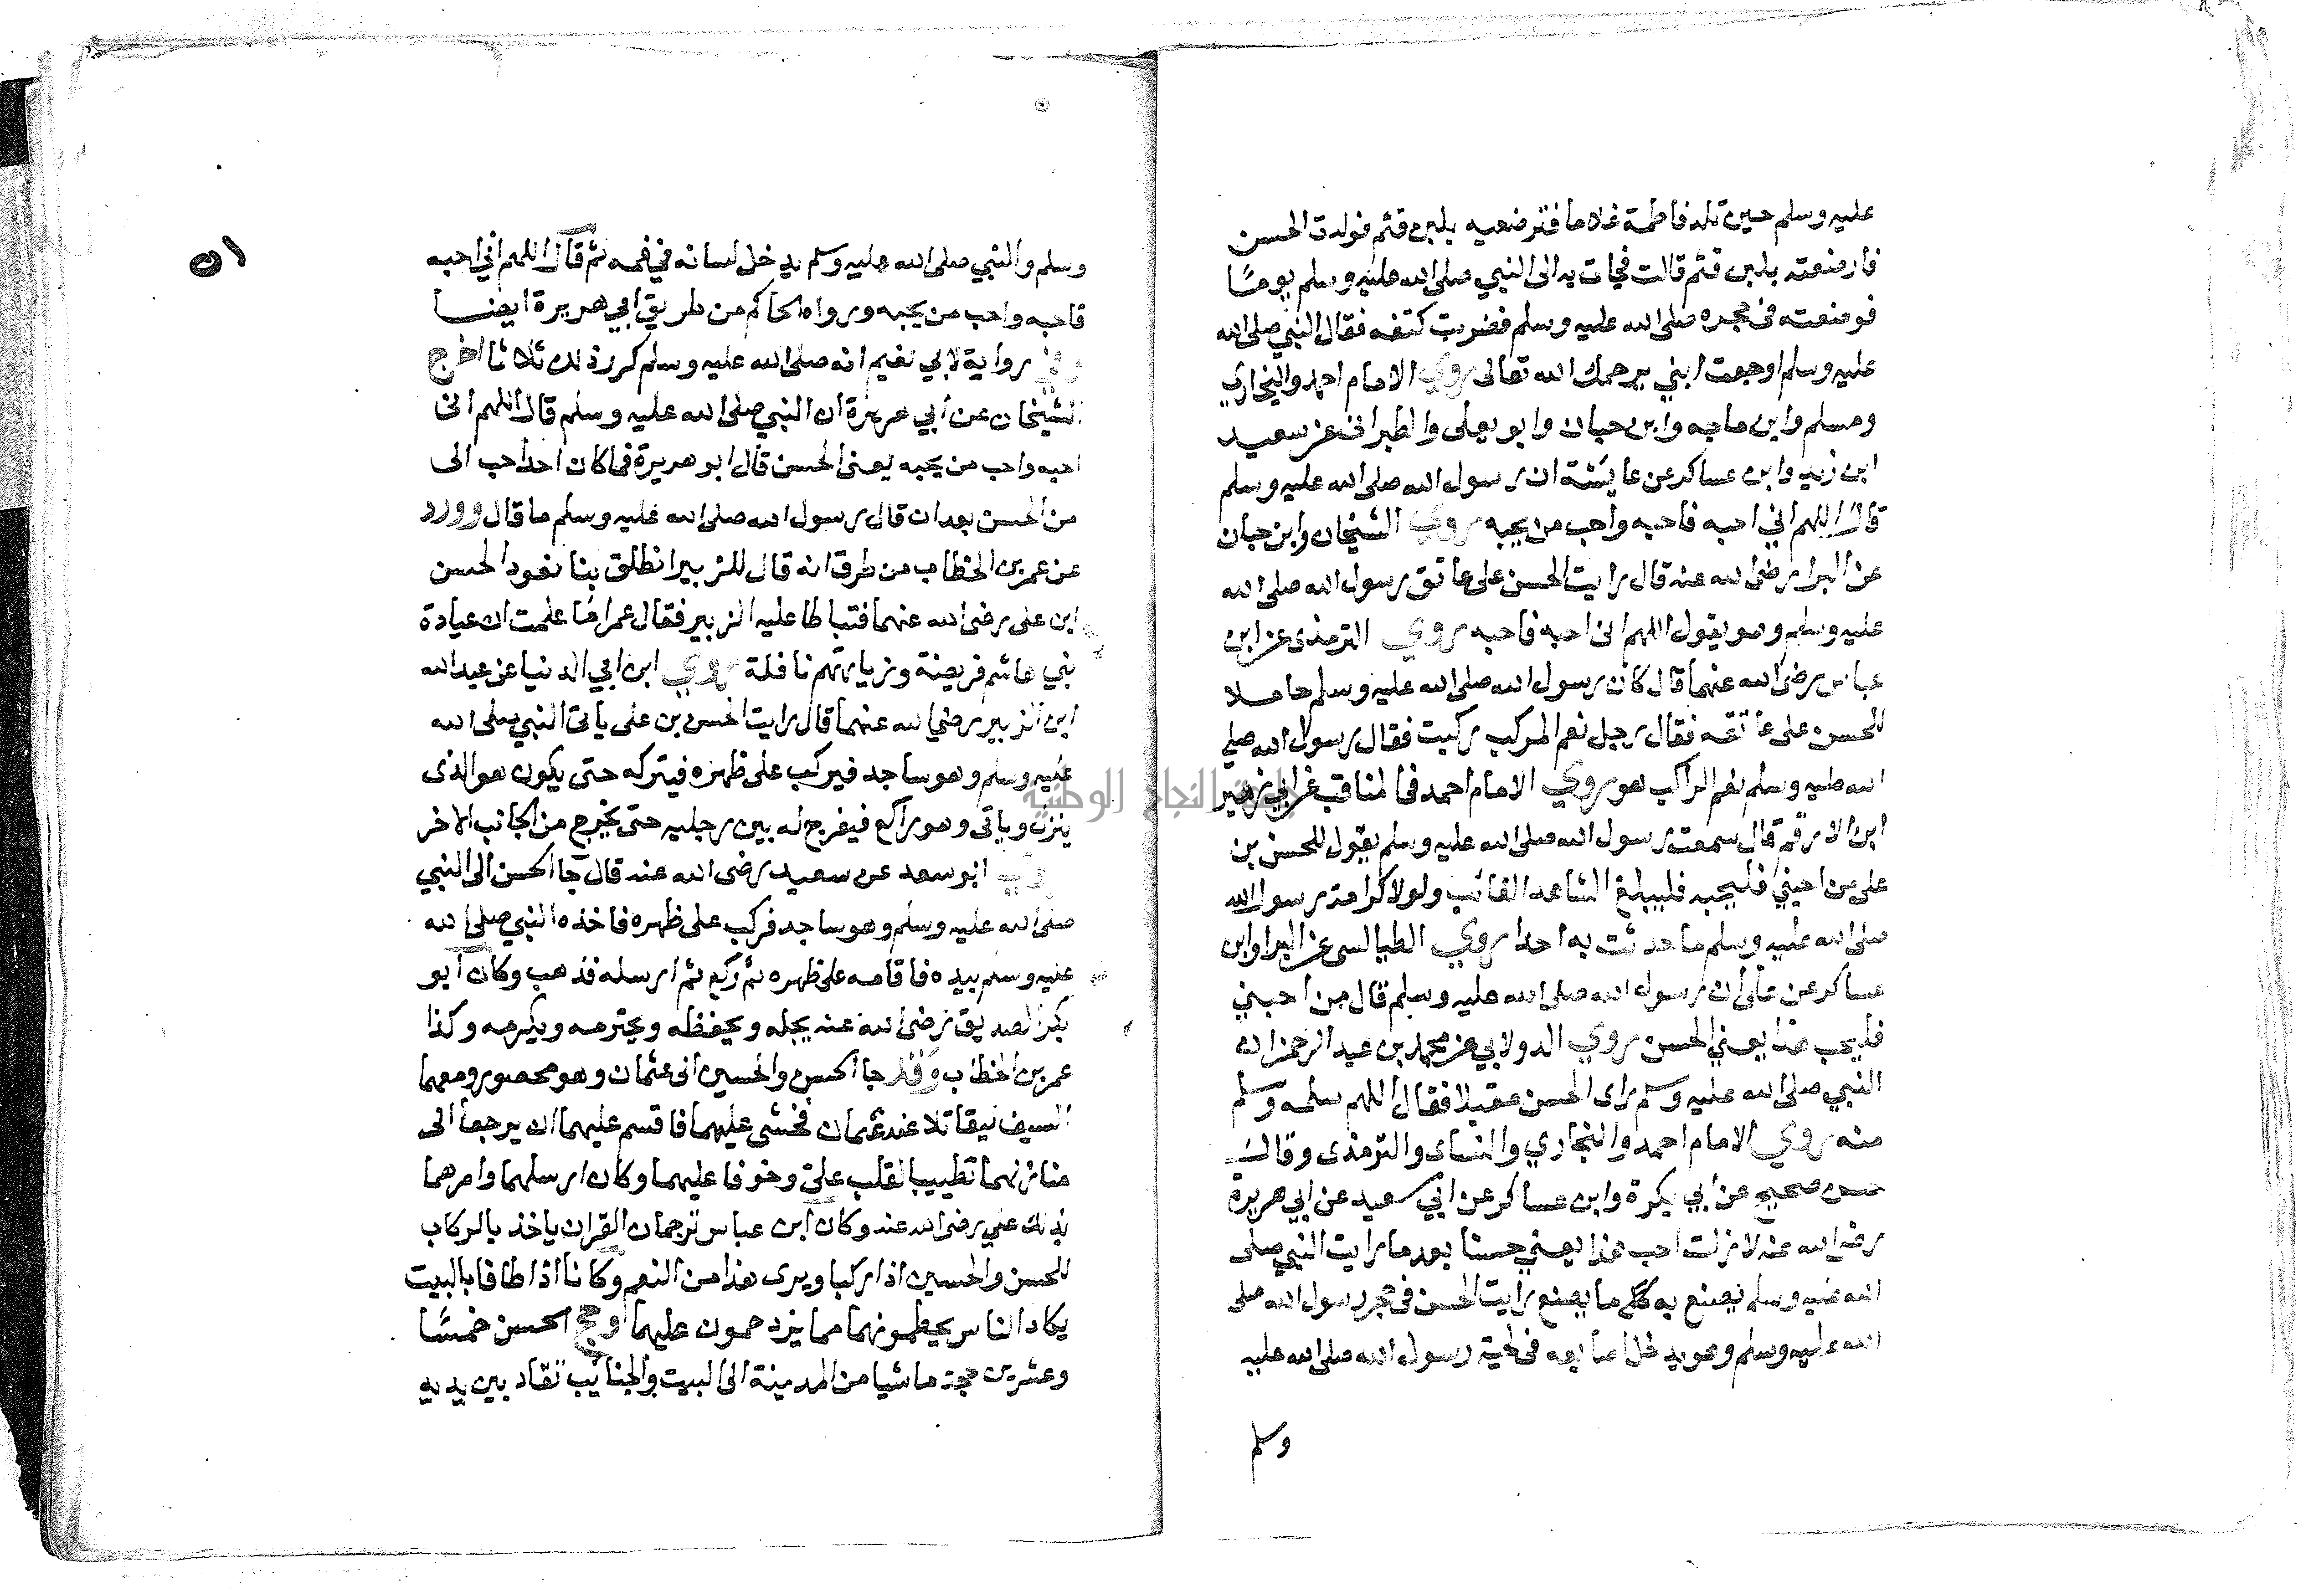 عليه وسلم حين تلد فاطمة غلاما فترضعيه بلبن قثم فولدت الحسن
فارضعته بلبن قثم قالت فجات به الى النبي صلى الله عليه وسلم يوما
فوضعته فى حجره صلى الله عليه وسلم فضربت كتفه فقال النبي صلى الله
عليه وسلم اوجعت ابني يرحمك الله تعالى روي الامام احمد والبخاري
ومسلم وابن ماجه وابن حبان وابو يعلى والطبرانى عن سعيد
ابن زيد وابن عساكر عن عايشة ان رسول الله صلى الله عليه وسلم
قال اللهم اني احبه فاحبه واحب من يحبه روي الشيخان وابن حبان
عن البرا رضى الله عنه قال رايت الحسن على عاتق رسول الله صلى الله
عليه وسلم وهو يقول اللهم انى احبه فاحبه روي الترمذى عن ابن
عباس رضى الله عنهما قال كان رسول الله صلى الله عليه وسلم حاملا
للحسن على عاتقه فقال رجل نعم المركب ركبت فقال رسول الله صلى
الله عليه وسلم نعم الراكب هو روي الامام احمد فى المناقب عن ابي زهير
ابن الارقم قال سمعت رسول الله صلى الله عليه وسلم يقول للحسن بن
على من احبني فليحبه فليبلغ الشاهد الغائب ولولا كرامة رسول الله
صلى الله عليه وسلم ما حدثت به احدا روي الطيالسى عن البرا وابن
عساكر عن على ان رسول الله صلى الله عليه وسلم قال من احبني
فليحب هذا يعني الحسن روي الدولابي عن محمد بن عبد الرحمن ان
النبي صلى الله عليه وسلم راى الحسن مقبلا فقال اللهم سلمه وسلم
منه روي الامام احمد والبخاري والنساى والترمذى وقال
حسن صحيح عن ابي بكرة وابن عساكر عن ابي سعيد عن ابي هريرة
رضى الله عنه لا زلت احب هذا يعني حسنا بعد ما رايت النبي صلى
الله عليه وسلم يصنع به ما يصنع رايت الحسن فى حجر رسول الله صلى
الله عليه وسلم وهو يدخل اصابعه فى لحية رسول الله صلى الله عليه
وسلم
٥١
وسلم والنبي صلى الله عليه وسلم يدخل لسانه في فمه ثم قال اللهم اني احبه
فاحبه واحب من يحبه ورواه الحاكم من طريق ابي هريرة ايضا
وفي رواية لابي نعيم انه صلى الله عليه وسلم كرر ذلك ثلاثا اخرج
الشيخان عن ابي هريرة ان النبي صلى الله عليه وسلم قال اللهم انى
احبه واحب من يحبه يعنى الحسن قال ابو هريرة فما كان احد احب الى
من الحسن بعد ان قال رسول الله صلى الله عليه وسلم ما قال وورد
عن عمر بن الخطاب من طرق انه قال للزبير انطلق بنا نعود الحسن
ابن على رضى الله عنهما فتباطا عليه الزبير فقال عمر اما علمت ان عيادة
بني هاشم فريضة وزيارتهم نافلة روي ابن ابي الدنيا عن عبد الله
ابن الزبير رضي الله عنهما قال رايت الحسن بن على ياتى النبي صلى الله
عليه وسلم وهو ساجد فيركب على ظهره فيتركه حتى يكون هو الذى
ينزل وياتى وهو راكع فيفرج له بين رجليه حتى يخرج من الجانب الاخر
روي ابو سعد عن سعيد رضى الله عنه قال جا الحسن الى النبي
صلى الله عليه وسلم وهو ساجد فركب على ظهره فاخذه النبي صلى الله
عليه وسلم بيده فاقامه على ظهره ثم ركع ثم ارسله فذهب وكان ابو
بكر الصديق رضى الله عنه يجله ويحفظه ويحترمه ويكرمه وكذا
عمر بن الخطاب وقد جا الحسن والحسين الى عثمان وهو محصور ومعهما
السيف ليقاتلا عند عثمان فخشى عليهما فاقسم عليهما ان يرجعا الى
منازلهما تطييبا لقلب على وخوفا عليهما وكان ارسلهما وامرهما
بذلك علي رضى الله عنه وكان ابن عباس ترجمان القران ياخذ بالركاب
للحسن والحسين اذا ركبا ويرى هذا من النعم وكانا اذا طافا بالبيت
يكاد الناس يحطمونهما مما يزدحمون عليهما وحج الحسن خمسا
وعشرين حجة ماشيا من المدينة الى البيت والجنائب تقاد بين يديه
جامعة النجاح الوطنية